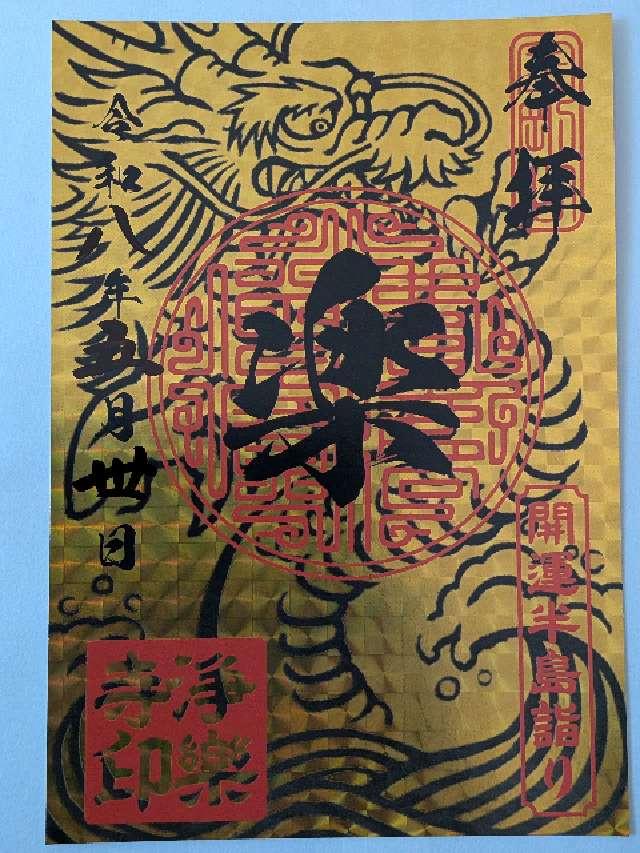 奉拝
楽
開運半島詣り
令和八年五月卅日
浄樂
寺印